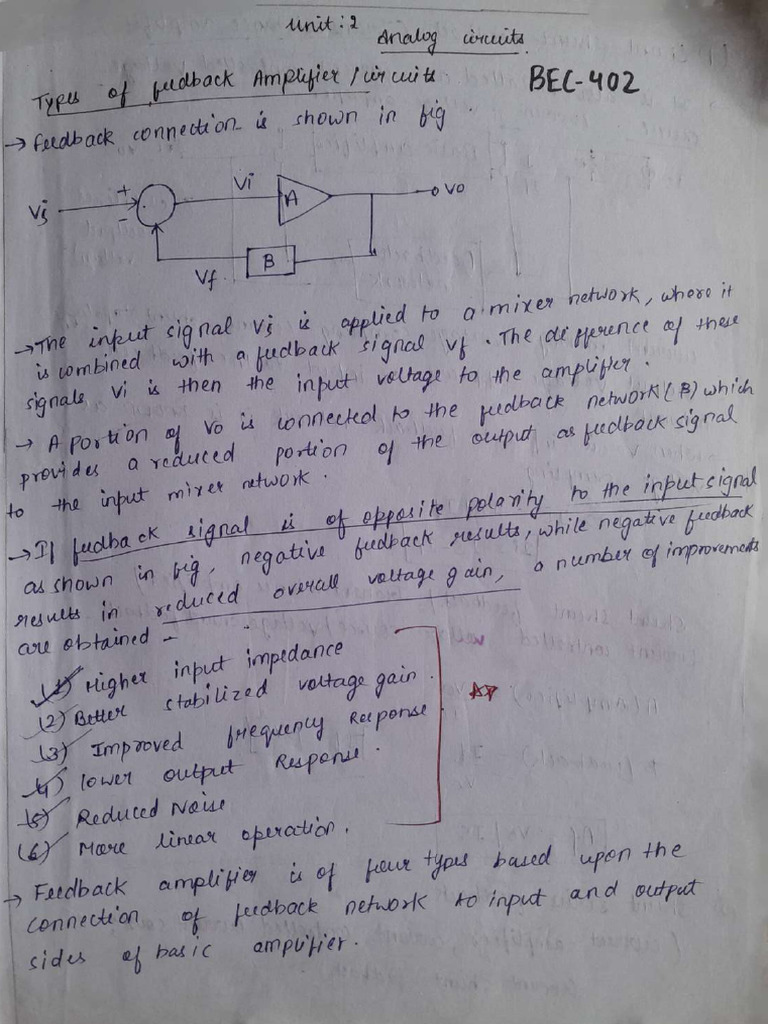 Unit: 2
Analog circuits.
Types of feedback Amplifier / circuits
BEC-402
→ Feedback connection is shown in fig.
Vs
+
-
Vi
A
Vo
Vf
B
→ The input signal Vs is applied to a mixer network, where it
is combined with a feedback signal Vf. The difference of these
signals Vi is then the input voltage to the amplifier.
→ A portion of Vo is connected to the feedback network (B) which
provides a reduced portion of the output as feedback signal
to the input mixer network.
→ If feedback signal is of opposite polarity to the input signal
as shown in fig, negative feedback results, while negative feedback
results in reduced overall voltage gain, a number of improvements
are obtained -
(1) Higher input impedance
(2) Better stabilized voltage gain.
(3) Improved frequency Response
(4) lower output Response.
(5) Reduced Noise
(6) More linear operation.
→ Feedback amplifier is of four types based upon the
connection of feedback network to input and output
sides of basic amplifier.